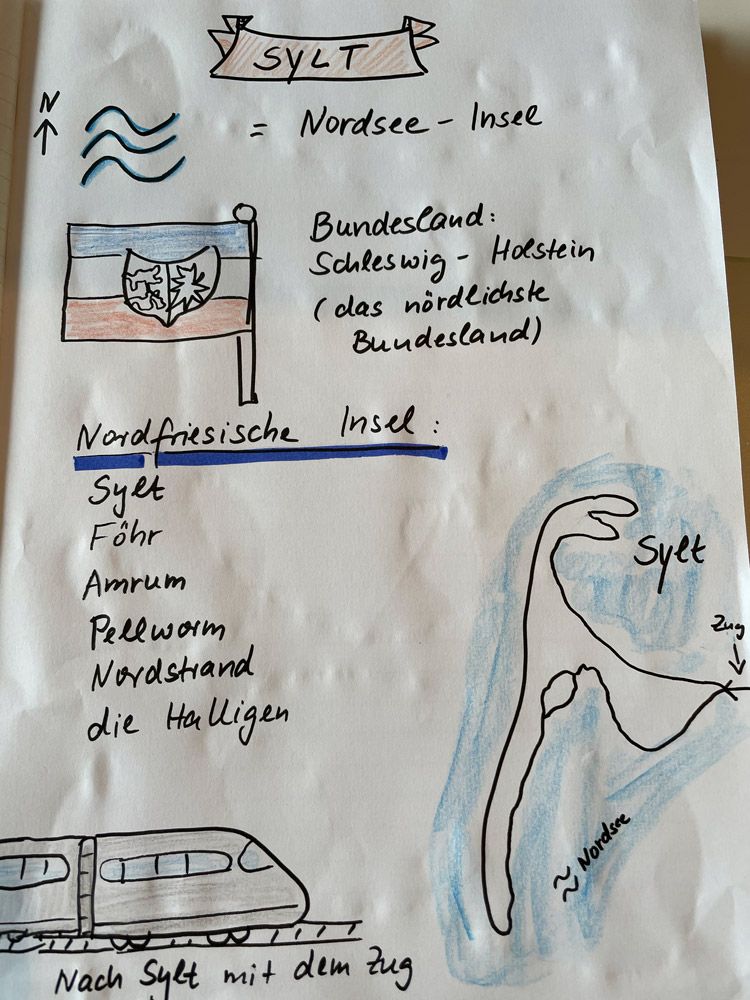 SYLT
N
= Nordsee - Insel
Bundesland:
Schleswig - Holstein
(das nördlichste
Bundesland)
Nordfriesische Insel:
Sylt
Föhr
Amrum
Pellworm
Nordstrand
die Halligen
Sylt
Zug
Nordsee
Nach Sylt mit dem Zug